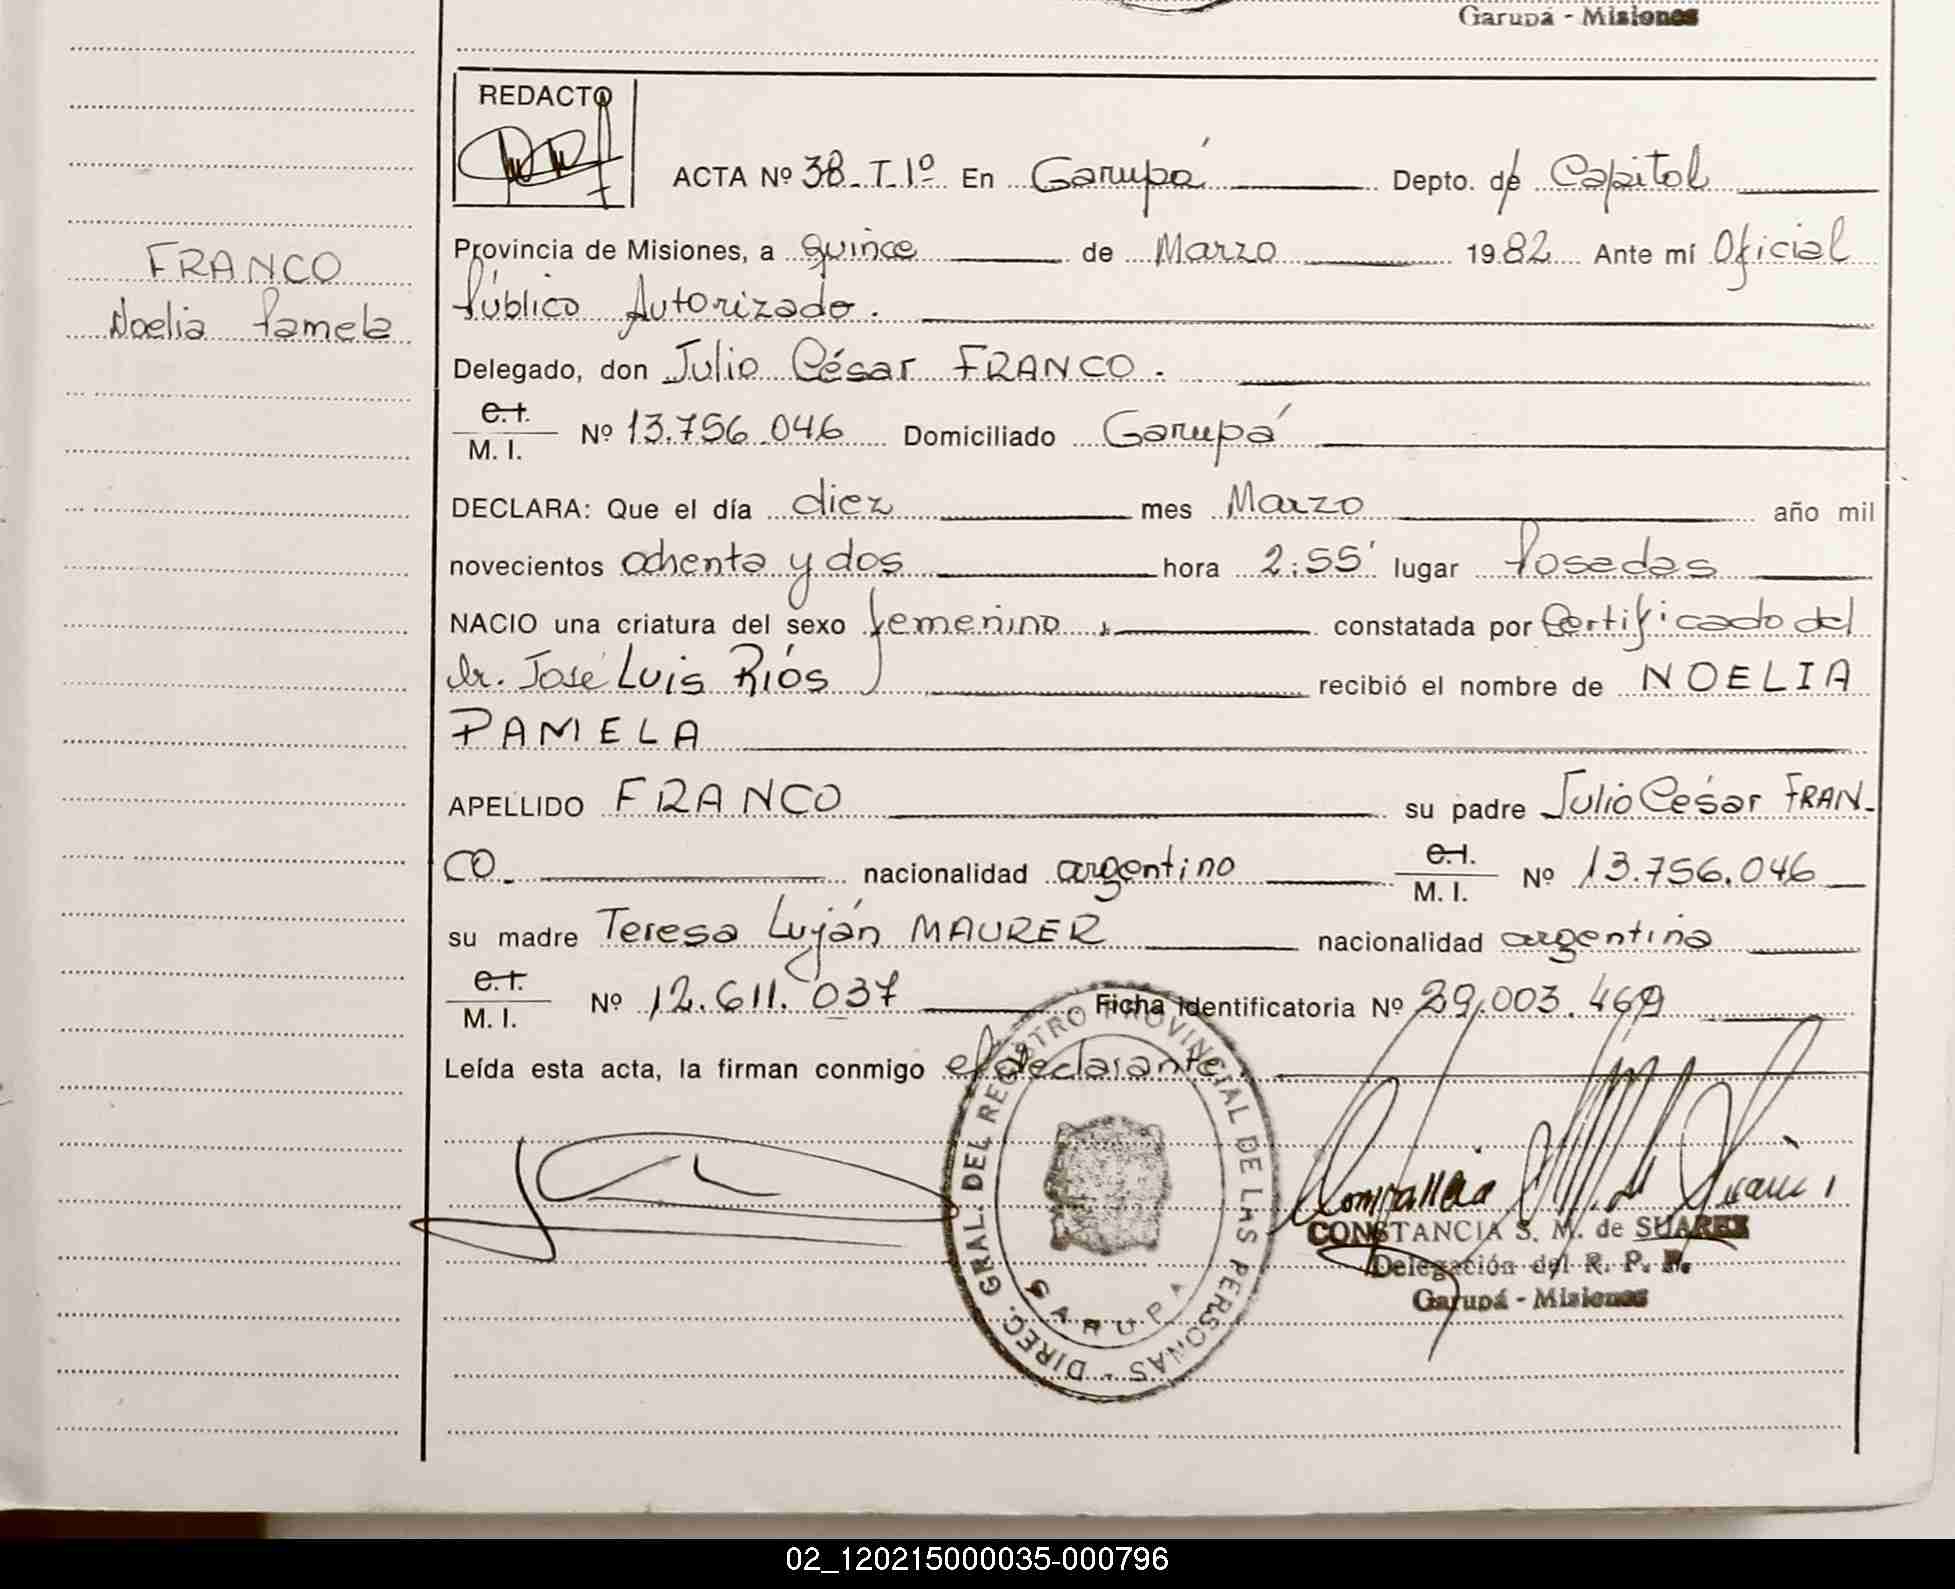 Garupá - Misiones
REDACTO
ACTA Nº 38-T.1º En Garupá Depto. de Capital
Provincia de Misiones, a quince de Marzo 1982 Ante mí Oficial
FRANCO
Público Autorizado.
Noelia Pamela
Delegado, don Julio César FRANCO.
C.I.
M. I. Nº 13.756.046 Domiciliado Garupá
DECLARA: Que el día diez mes Marzo año mil
novecientos ochenta y dos hora 2:55' lugar Posadas
NACIO una criatura del sexo femenino constatada por Certificado del
Dr. José Luis Riós recibió el nombre de NOELIA
PAMELA
APELLIDO FRANCO su padre Julio César FRAN-
CO. nacionalidad argentino C.I. M. I. Nº 13.756.046
su madre Teresa Luján MAURER nacionalidad argentina
C.I.
M. I. Nº 12.611.037 Ficha Identificatoria Nº 29.003.469
Leída esta acta, la firman conmigo el declarante.
DIREC. GRAL. DEL REGISTRO PROVINCIAL DE LAS PERSONAS -
GARUPA
CONSTANCIA S. M. de SUAREZ
Delegación del R. P. P.
Garupá - Misiones
02_120215000035-000796